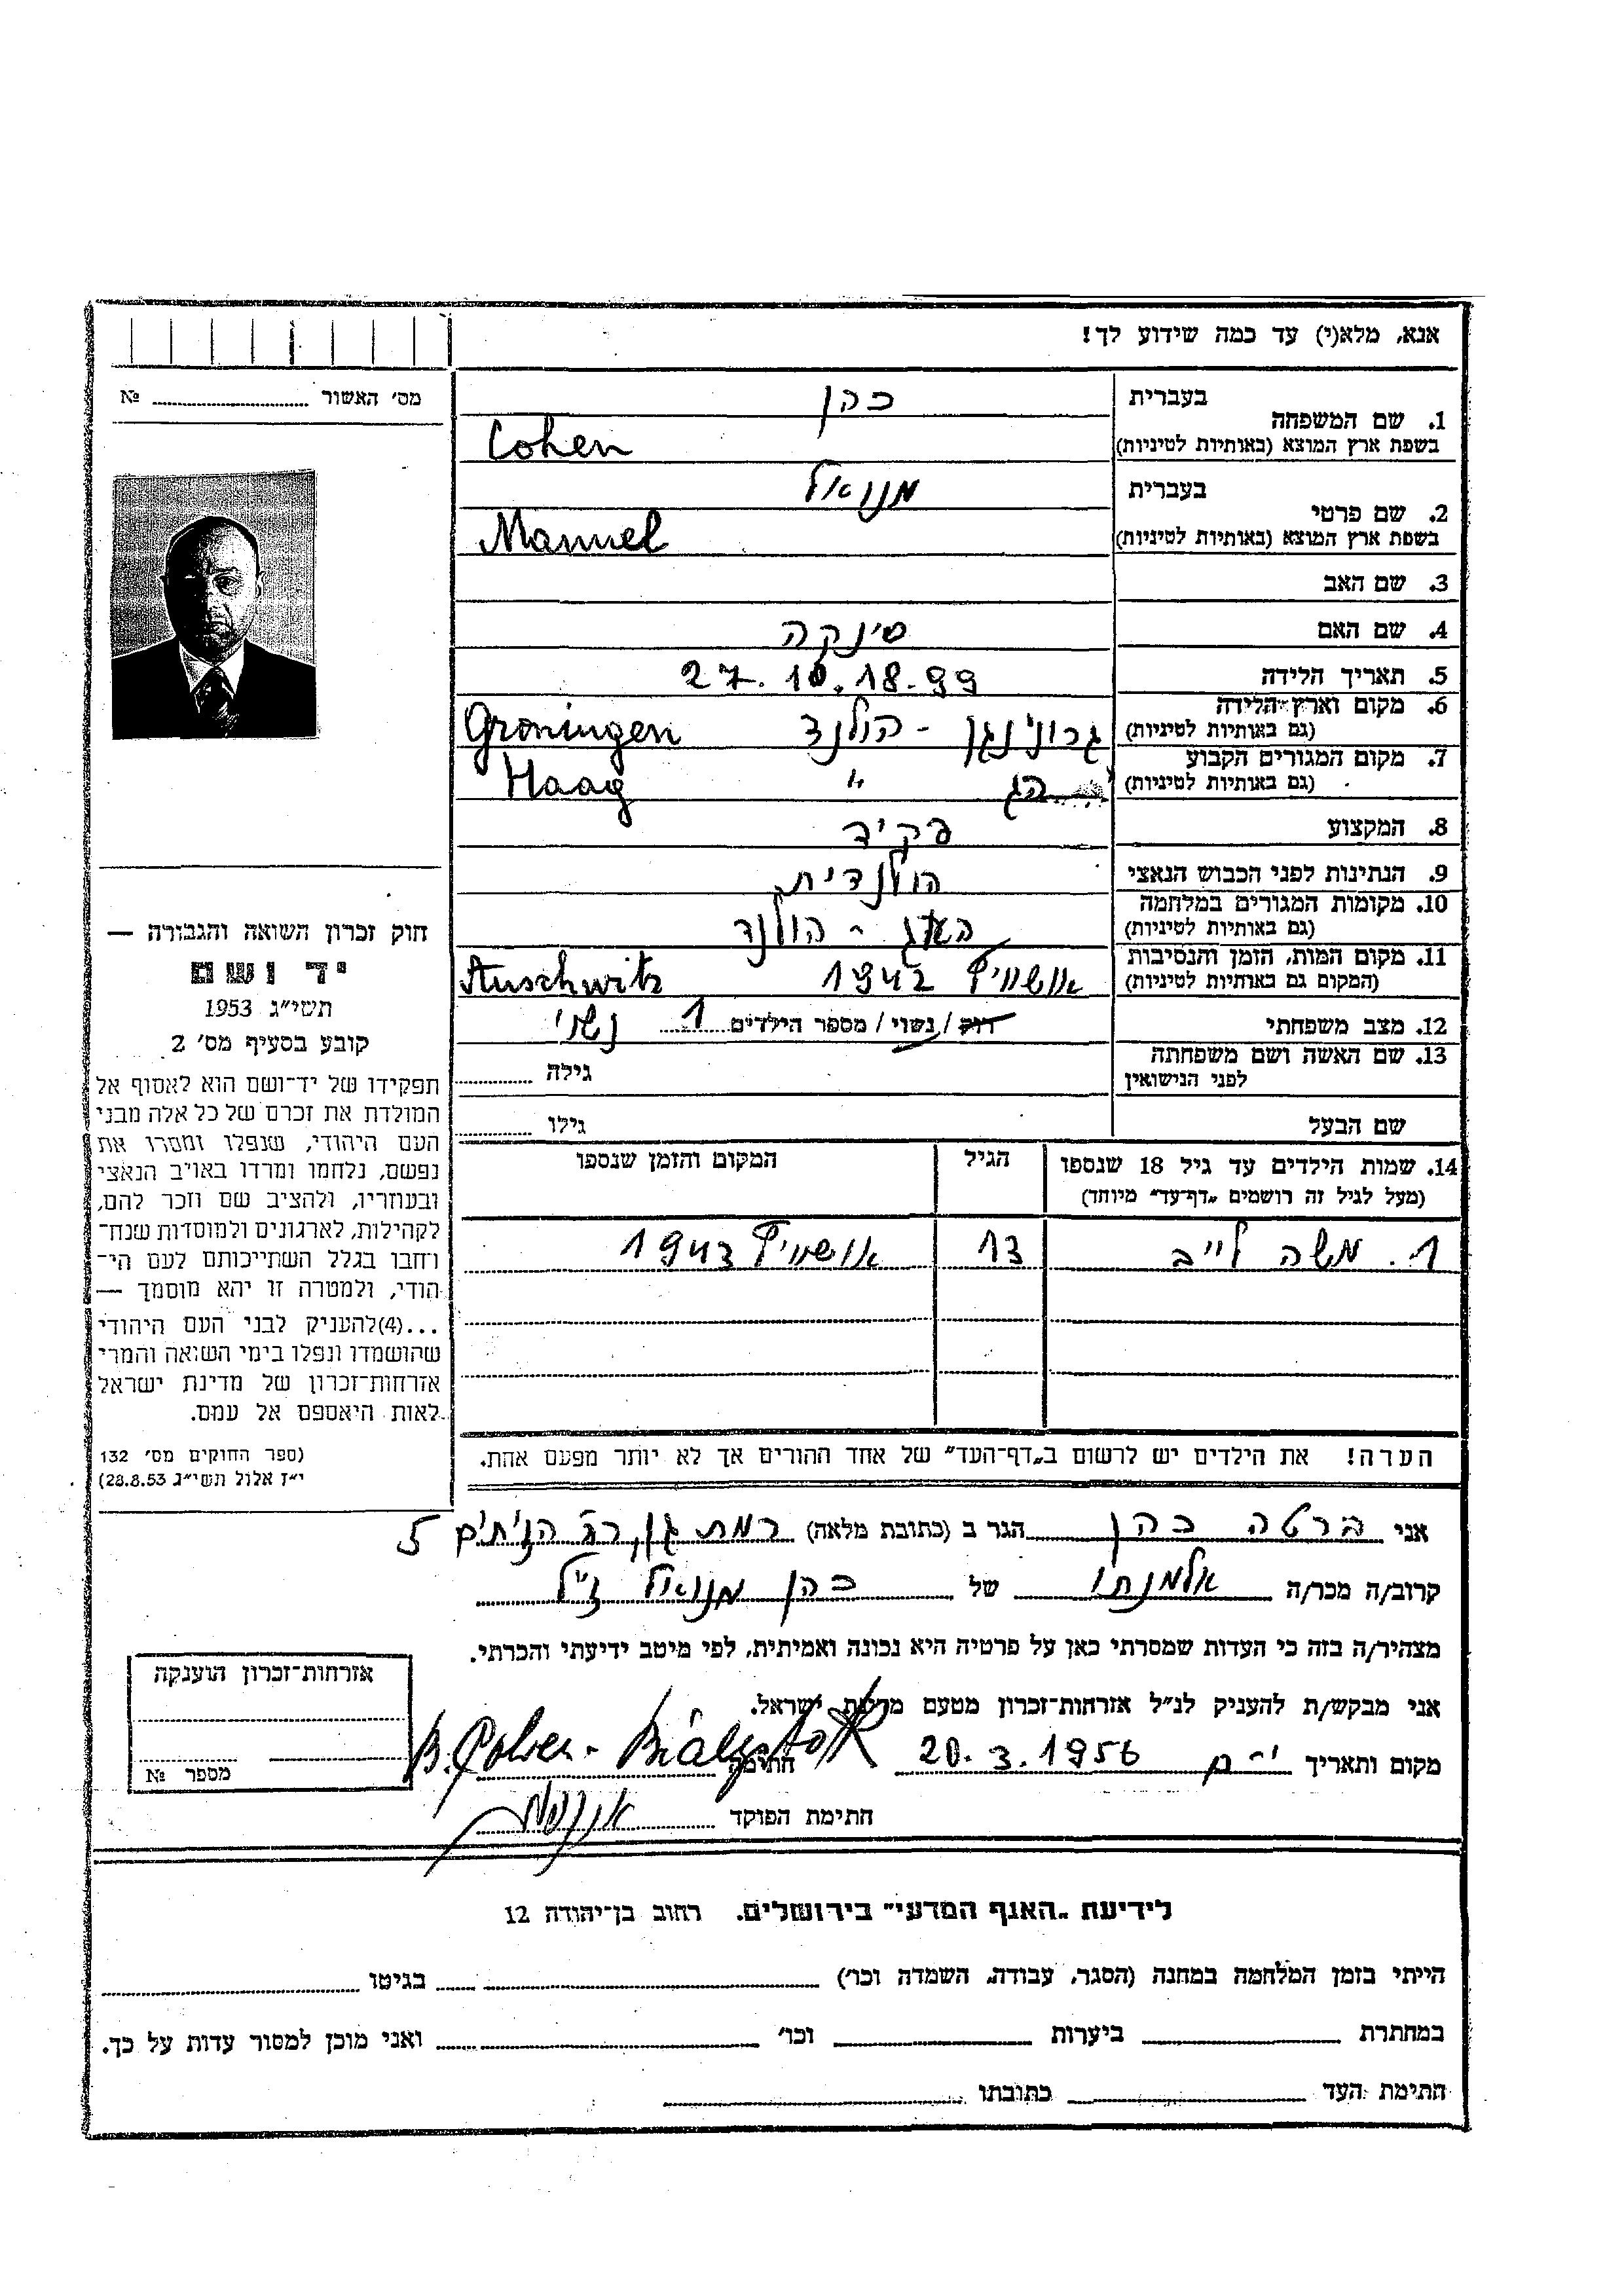 אנא, מלא(י) עד כמה שידוע לך!
מס׳ האשור № 
1. שם המשפחה בעברית כהן
בשפת ארץ המוצא (באותיות לטיניות) Cohen
2. שם פרטי בעברית מנואל
בשפת ארץ המוצא (באותיות לטיניות) Manuel
3. שם האב
4. שם האם סינקה
5. תאריך הלידה 27.10.18.99
6. מקום וארץ־הלידה (גם באותיות לטיניות) גרונינגן - הולנד Groningen
7. מקום המגורים הקבוע (גם באותיות לטיניות) הג " Haag
8. המקצוע פקיד
9. הנתינות לפני הכבוש הנאצי הולנדית
10. מקומות המגורים במלחמה (גם באותיות לטיניות) האג - הולנד
11. מקום המות, הזמן והנסיבות (המקום גם באותיות לטיניות) אושוויץ 1942 Auschwitz
12. מצב משפחתי רווק / נשוי / מספר הילדים 1 נשוי
13. שם האשה ושם משפחתה לפני הנישואין גילה
שם הבעל גילו
14. שמות הילדים עד גיל 18 שנספו הגיל המקום והזמן שנספו
(מעל לגיל זה רושמים „דף־עד״ מיוחד)
1. משה לייב 13 אושוויץ 1943
הערה! את הילדים יש לרשום ב„דף־העד״ של אחד ההורים אך לא יותר מפעם אחת.
חוק זכרון השואה והגבורה —
יד ושם
תשי״ג 1953
קובע בסעיף מס׳ 2
תפקידו של יד־ושם הוא לאסוף אל
המולדת את זכרם של כל אלה מבני
העם היהודי, שנפלו ומסרו את
נפשם, נלחמו ומרדו באויב הנאצי
ובעוזריו, ולהציב שם וזכר להם,
לקהילות, לארגונים ולמוסדות שנח־
רחבו בגלל השתייכותם לעם הי־
הודי, ולמטרה זו יהא מוסמך —
...(4)להעניק לבני העם היהודי
שהושמדו ונפלו בימי השואה והמרי
אזרחות־זכרון של מדינת ישראל
לאות היאספם אל עמם.
(ספר החוקים מס׳ 132
י״ז אלול תשי״ג 28.8.53)
אני ברטה כהן הגר ב (כתובת מלאה) רמת גן, 5
קרוב/ה מכר/ה אלמנתו של כהן מנואל ז״ל
מצהיר/ה בזה כי העדות שמסרתי כאן על פרטיה היא נכונה ואמיתית, לפי מיטב ידיעתי והכרתי.
אני מבקש/ת להעניק לנ״ל אזרחות־זכרון מטעם מדינת ישראל.
מקום ותאריך 20.3.1956 חתימה B. Cohen-Bialystok
חתימת הפוקד
אזרחות־זכרון הוענקה
מספר №
לידיעת „האגף המדעי״ בירושלים, רחוב בן־יהודה 12
הייתי בזמן המלחמה במחנה (הסגר, עבודה, השמדה וכו׳) בגיטו
במחתרת ביערות וכו׳ ואני מוכן למסור עדות על כך.
חתימת העד כתובתו